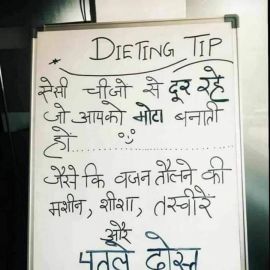 DIETING TIP
ऐसी चीजो से दूर रहे
जो आपको मोटा बनाती
हो..............................
जैसे कि वजन तौलने की
मशीन, शीशा, तस्वीरे
और
पतले दोस्त